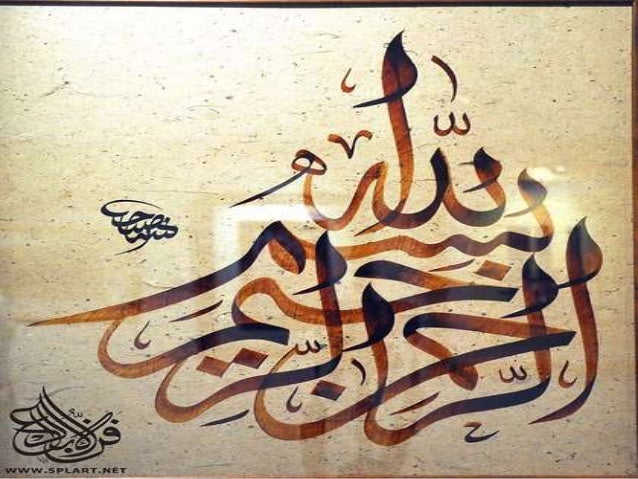 بسم الله الرحمن الرحيم
WWW.SPLART.NET